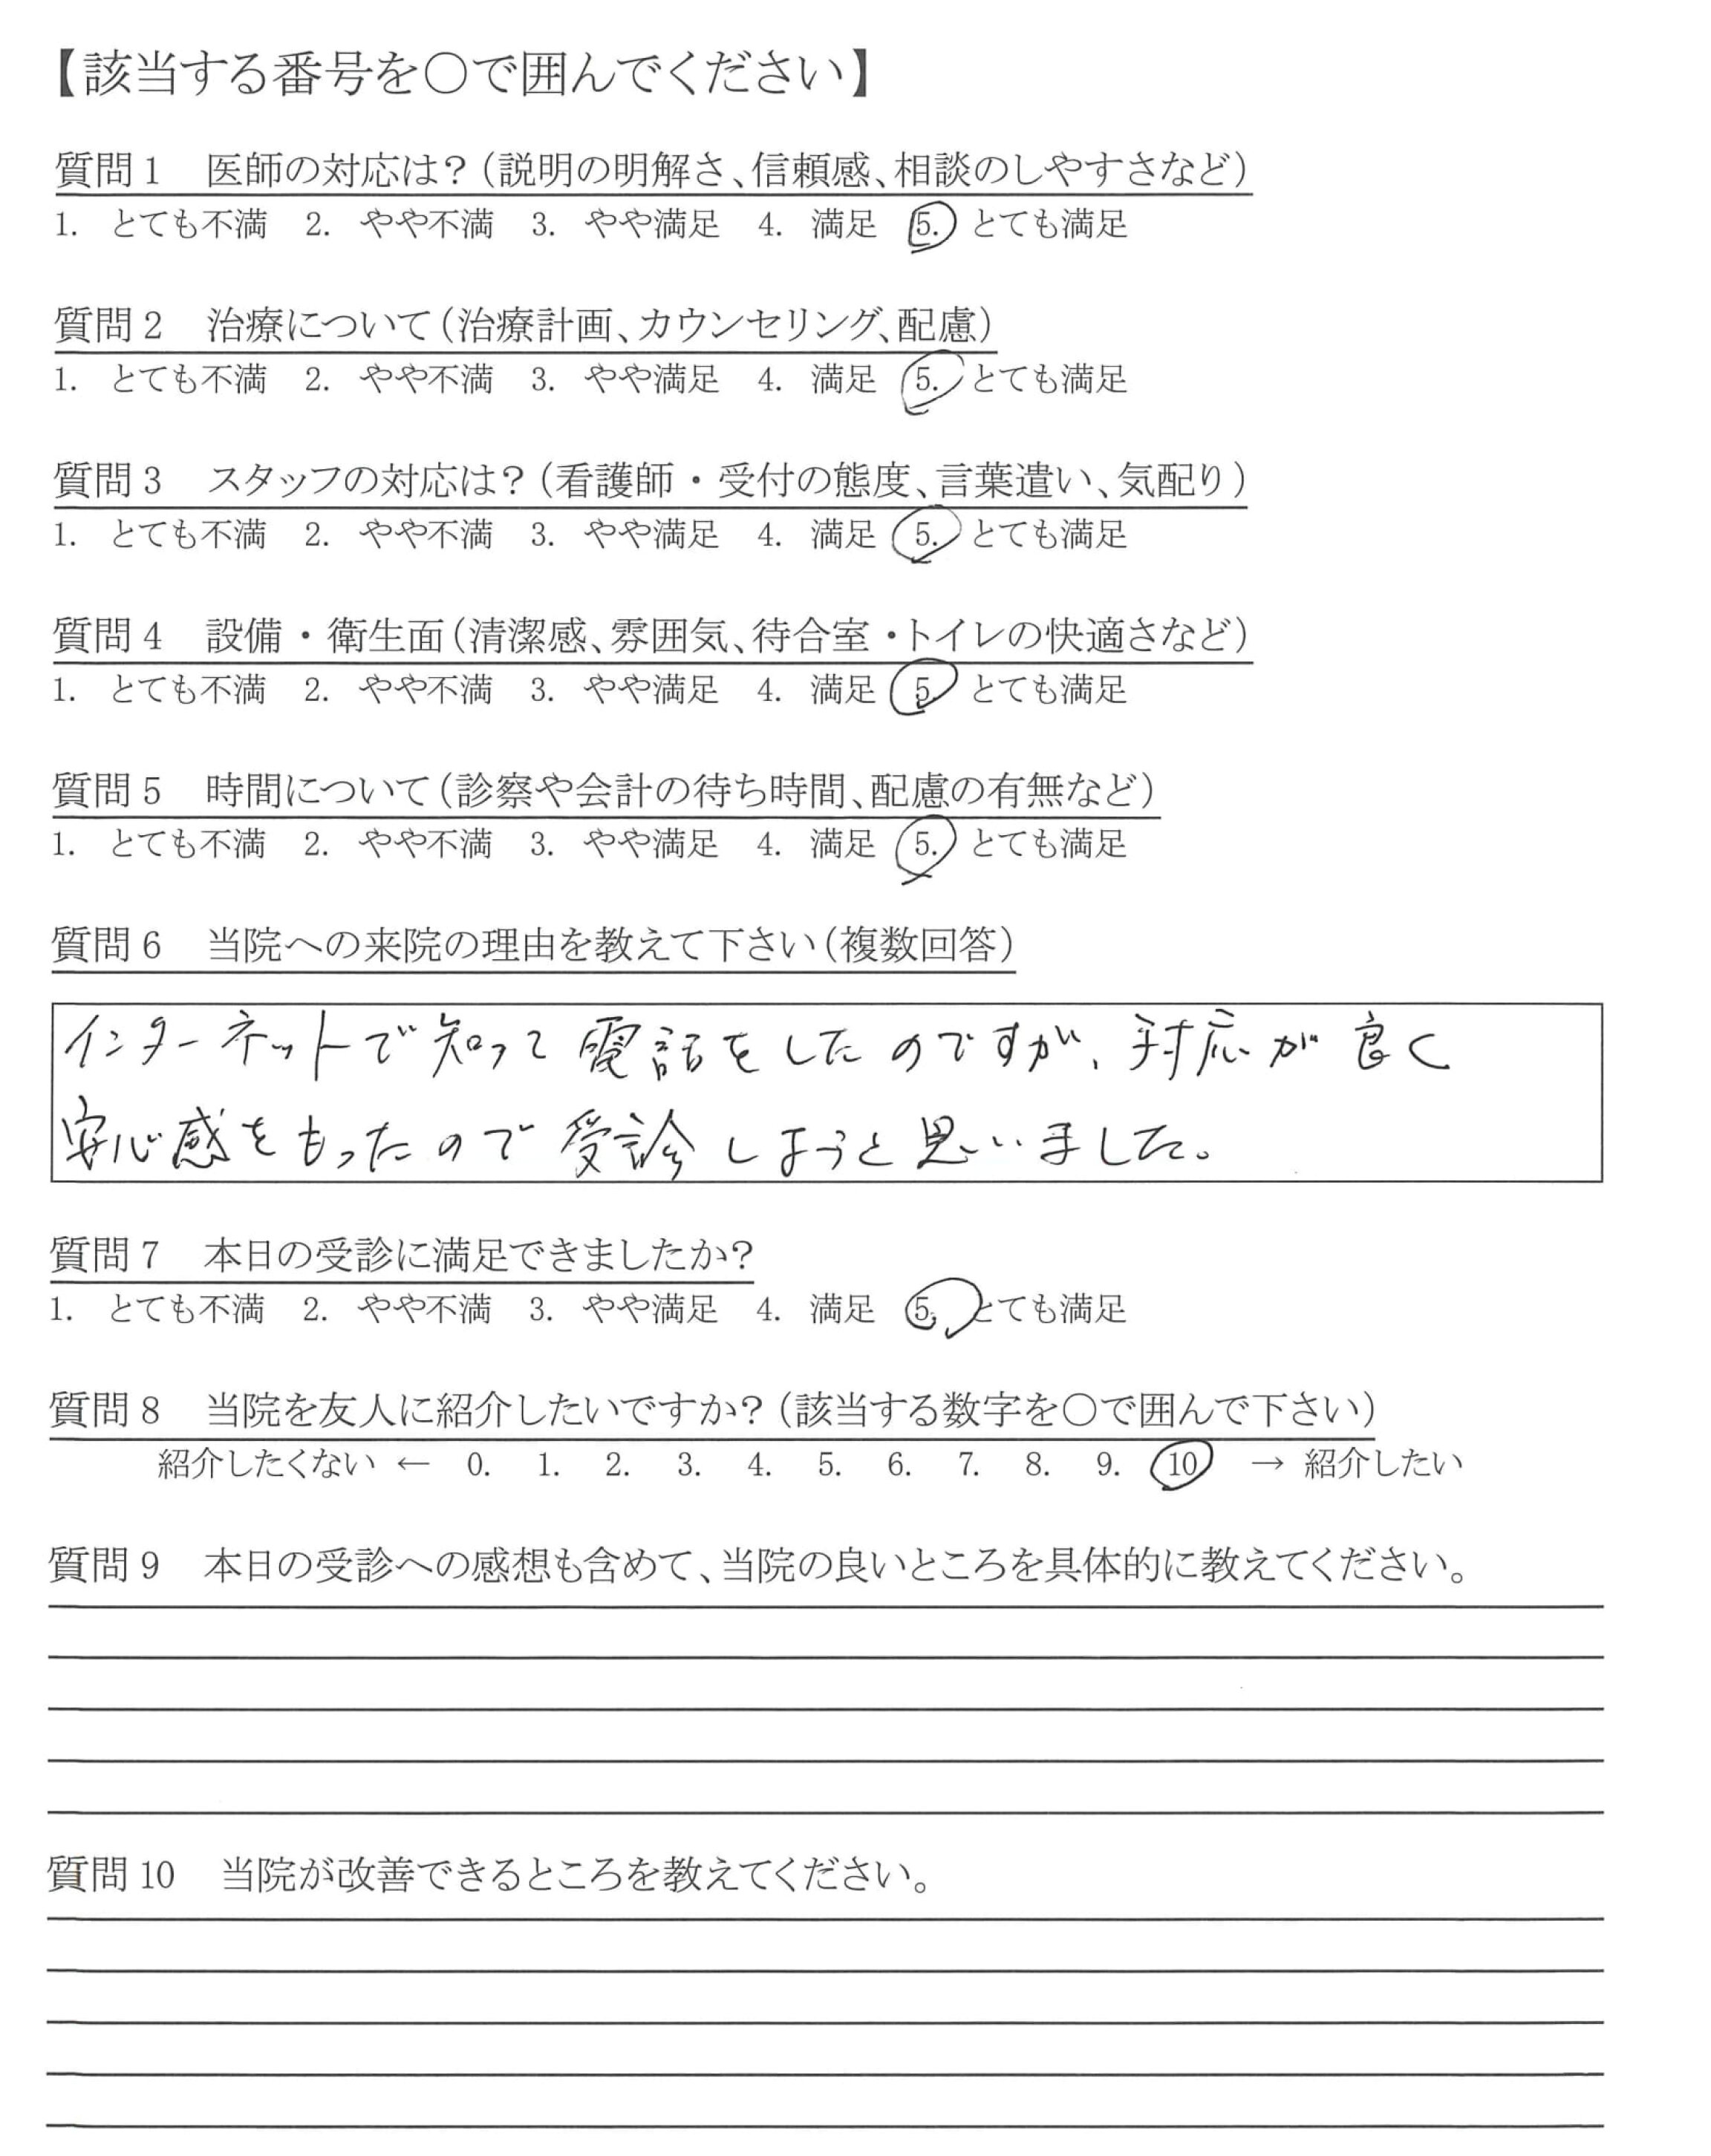 【該当する番号を○で囲んでください】
質問1　医師の対応は？（説明の明解さ、信頼感、相談のしやすさなど）
1.　とても不満　2.　やや不満　3.　やや満足　4.　満足　5.　とても満足
質問2　治療について（治療計画、カウンセリング、配慮）
1.　とても不満　2.　やや不満　3.　やや満足　4.　満足　5.　とても満足
質問3　スタッフの対応は？（看護師・受付の態度、言葉遣い、気配り）
1.　とても不満　2.　やや不満　3.　やや満足　4.　満足　5.　とても満足
質問4　設備・衛生面（清潔感、雰囲気、待合室・トイレの快適さなど）
1.　とても不満　2.　やや不満　3.　やや満足　4.　満足　5.　とても満足
質問5　時間について（診察や会計の待ち時間、配慮の有無など）
1.　とても不満　2.　やや不満　3.　やや満足　4.　満足　5.　とても満足
質問6　当院への来院の理由を教えて下さい（複数回答）
インターネットで知って電話をしたのですが、対応が良く
安心感をもったので受診しようと思いました。
質問7　本日の受診に満足できましたか？
1.　とても不満　2.　やや不満　3.　やや満足　4.　満足　5.　とても満足
質問8　当院を友人に紹介したいですか？（該当する数字を○で囲んで下さい）
紹介したくない ← 0.　1.　2.　3.　4.　5.　6.　7.　8.　9.　10　→ 紹介したい
質問9　本日の受診への感想も含めて、当院の良いところを具体的に教えてください。
質問10　当院が改善できるところを教えてください。